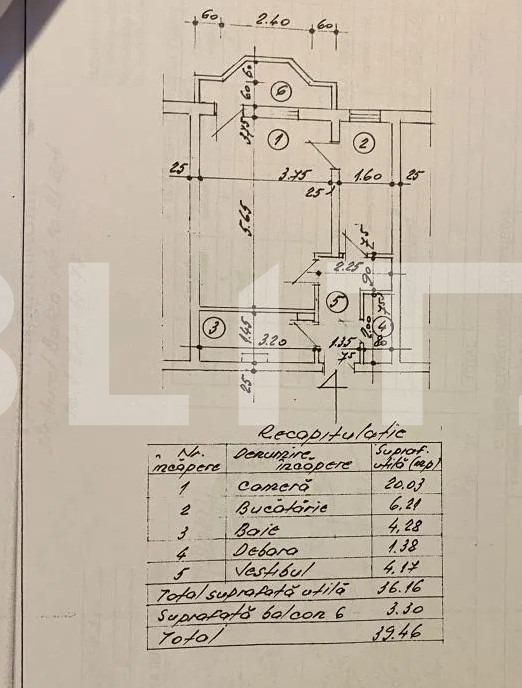 60 2.40 60
60
6
60
37.5
1
2
25 3.75 1.60 25
25
5.65
75
2.25
90
5
75
3
1.45
4
2.00
3.20 1.35 80
75
25
BLIT
Recapitulație
Nr. încăpere Denumire încăpere Supraf. utilă (mp)
1 Cameră 20.03
2 Bucătărie 6.21
3 Baie 4.28
4 Debara 1.38
5 Vestibul 4.17
Total suprafată utilă 36.16
Suprafată balcon 6 3.30
Total 39.46